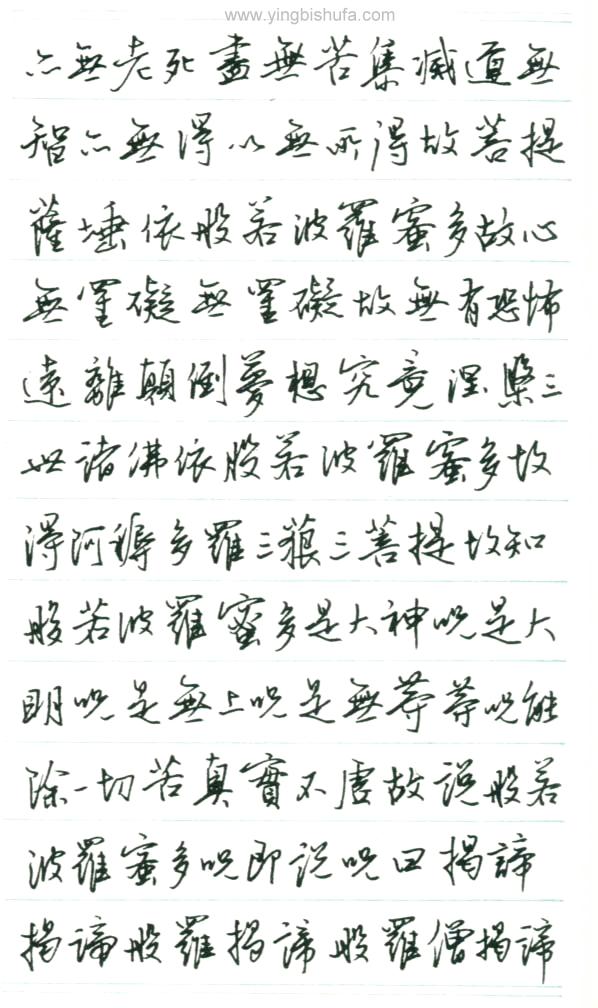 www.yingbishufa.com
亦無老死盡無苦集滅道無
智亦無得以無所得故菩提
薩埵依般若波羅蜜多故心
無罣礙無罣礙故無有恐怖
遠離顛倒夢想究竟涅槃三
世諸佛依般若波羅蜜多故
得阿耨多羅三藐三菩提故知
般若波羅蜜多是大神咒是大
明咒是無上咒是無等等咒能
除一切苦真實不虛故說般若
波羅蜜多咒即說咒曰揭諦
揭諦般羅揭諦般羅僧揭諦